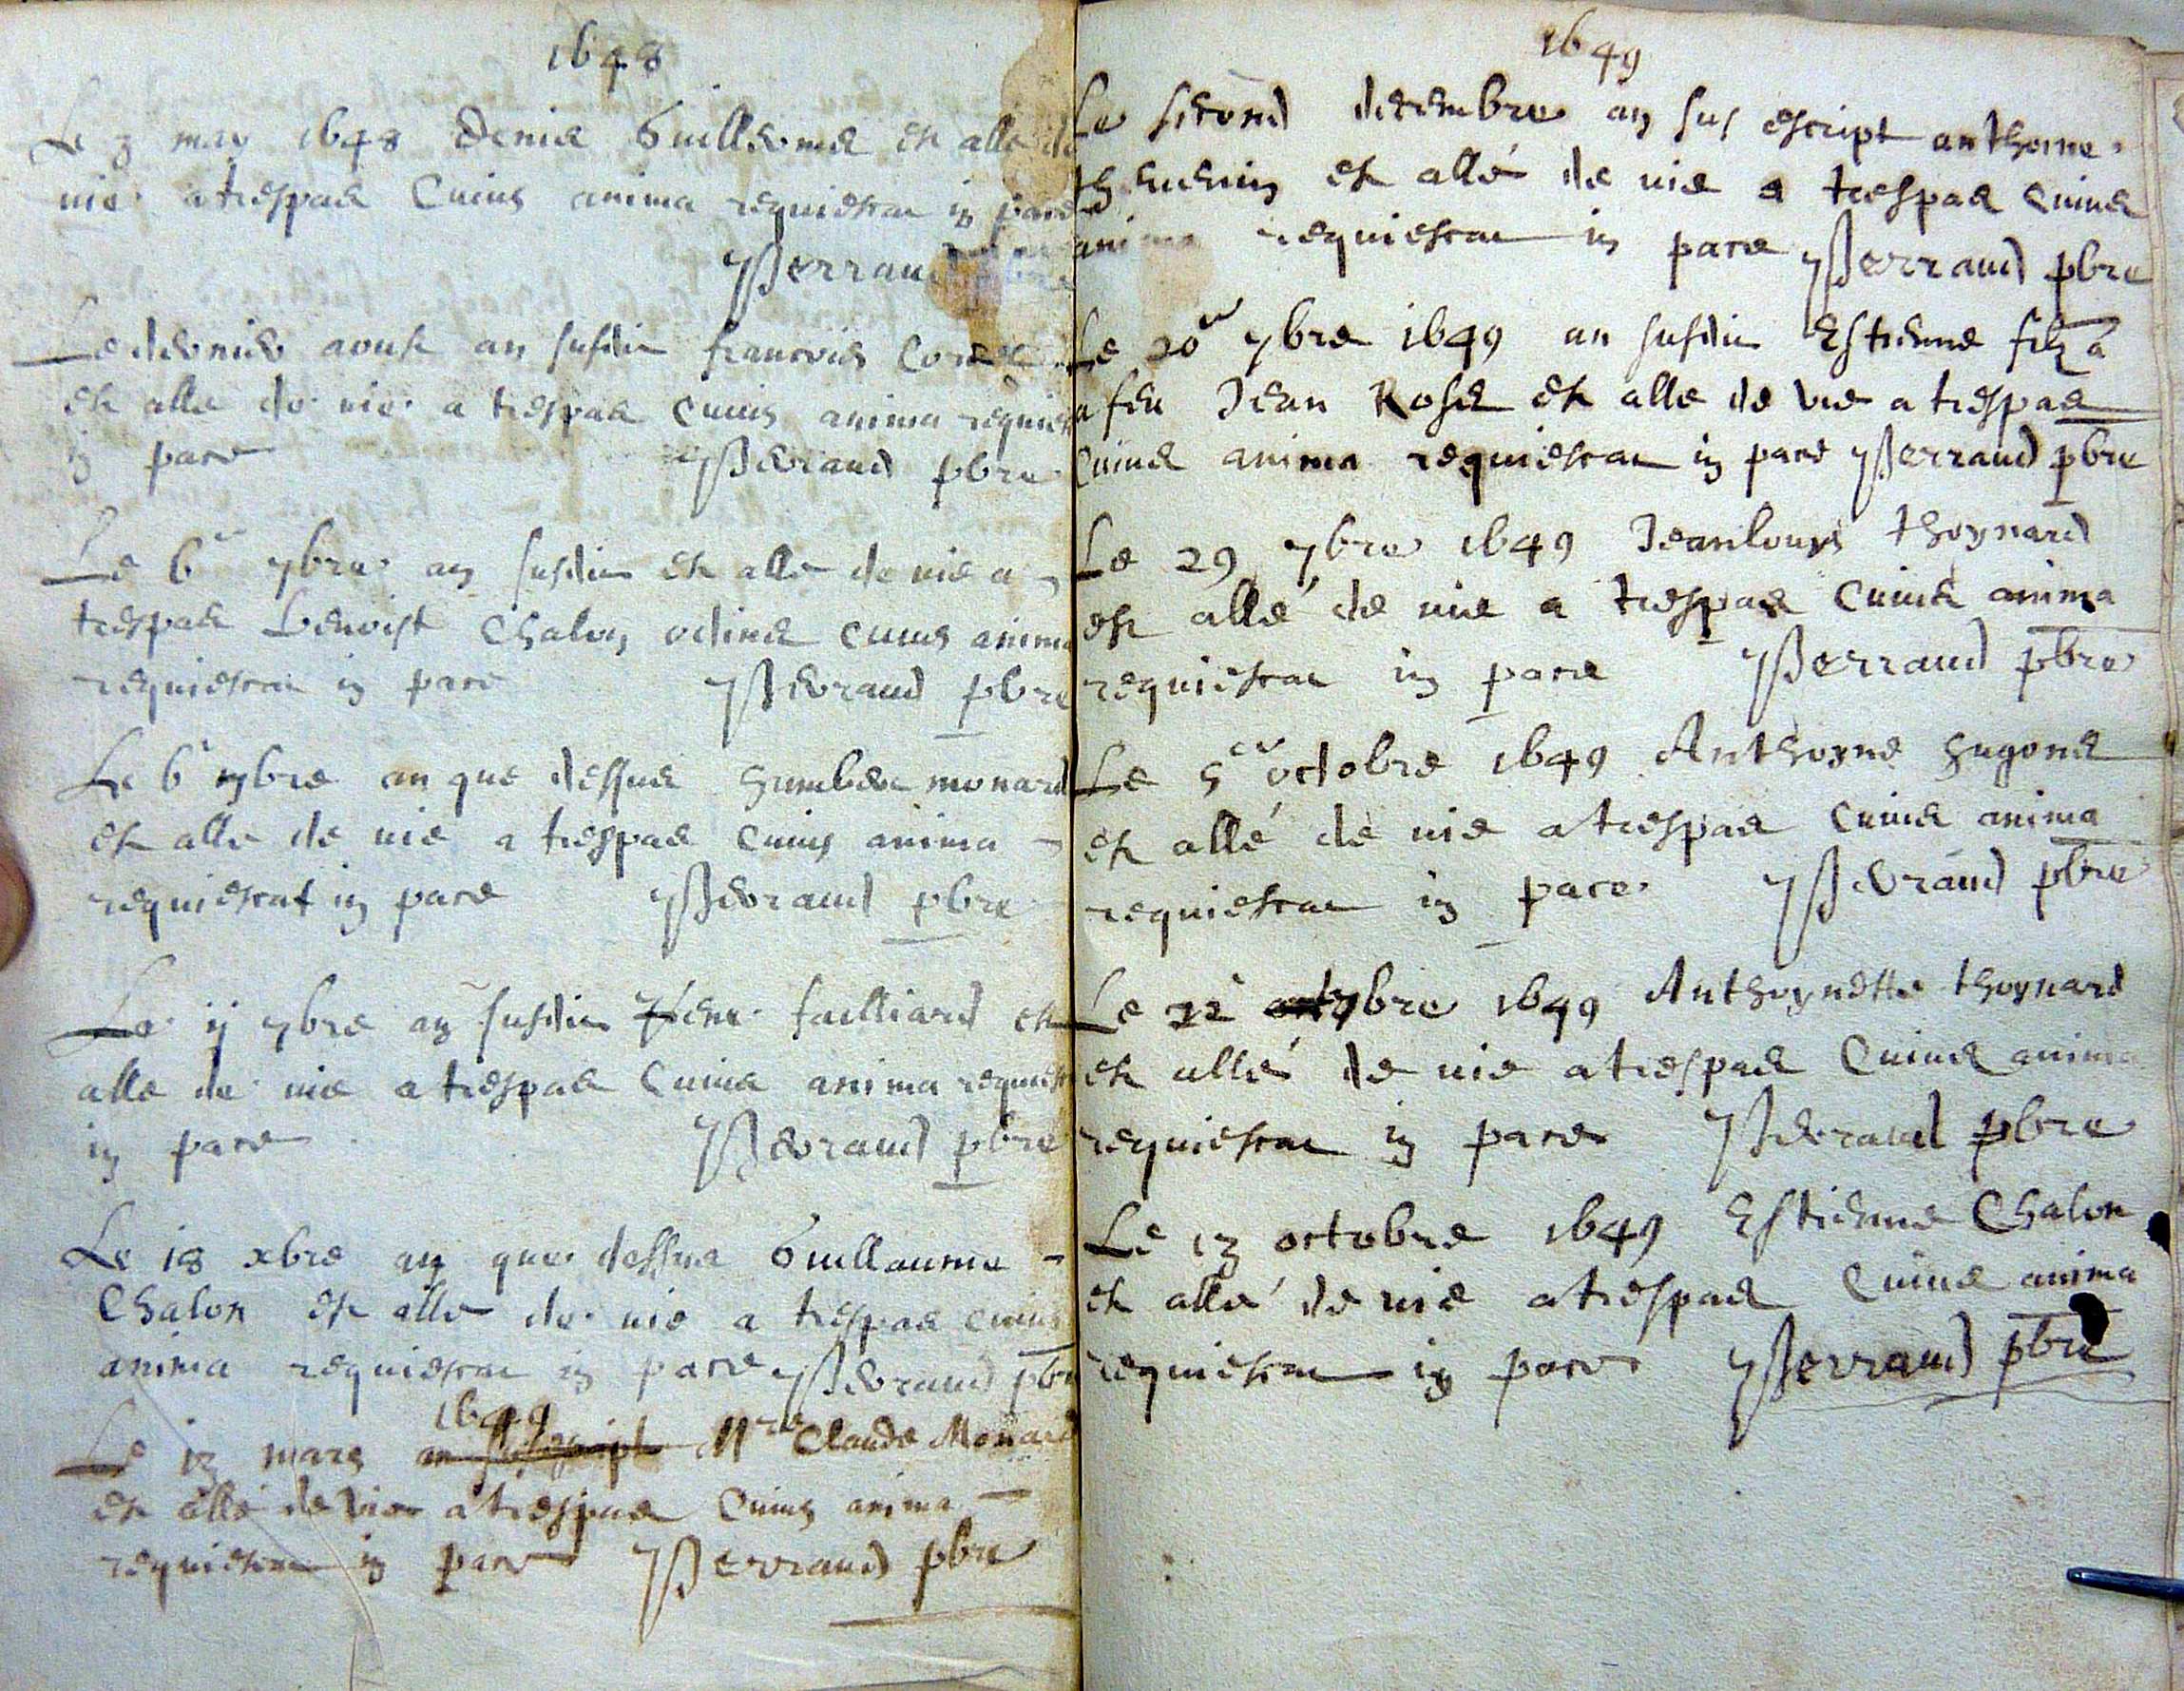 1648
Le 3 may 1648 Denis Guillerme est allé de
vie a trespas Cuius anima requiescat in pace
Perraud
Le dernier aoust an susdit francois
est alle de vie a trespas Cuius anima requies
in pace Perraud pbre
Le 6e 7bre an susdit est alle de vie a
trespas benoist Chalon cuius anima
requiescat in pace Perraud pbre
Le 6e 9bre an que dessus humbert monard
est alle de vie a trespas Cuius anima
requiescat in pace Perraud pbre
Le ij 7bre an susdit failliard est
alle de vie a trespas Cuius anima requies
in pace Perraud pbre
Le 18 xbre an que dessus Guillaume
Chalon est alle de vie a trespas cuius
anima requiescat in pace Perraud pbre
1649
Le 13 mars an susescript Mre Claude Monard
est allé de vie a trespas Cuius anima
requiescat in pace Perraud pbre
1649
Le second decembre an sus escript anthoine
thevenin est allé de vie a trespas cuius
anima requiescat in pace Perraud pbre
Le 20e 7bre 1649 an susdit Estienne filz a
a feu Jean Rose est alle de vie a trespas
Cuius anima requiescat in pace Perraud pbre
Le 29 7bre 1649 Jeanlouys thoynard
est allé de vie a trespas Cuius anima
requiescat in pace Perraud pbre
Le 5e octobre 1649 Anthoyne hugone
est allé de vie a trespas Cuius anima
requiescat in pace Perraud pbre
Le 22e 1649 Anthoynette thoynard
est allé de vie a trespas Cuius anima
requiescat in pace Perraud pbre
Le 13 octobre 1649 Estienne Chalon
est allé de vie a trespas Cuius anima
requiescat in pace Perraud pbre